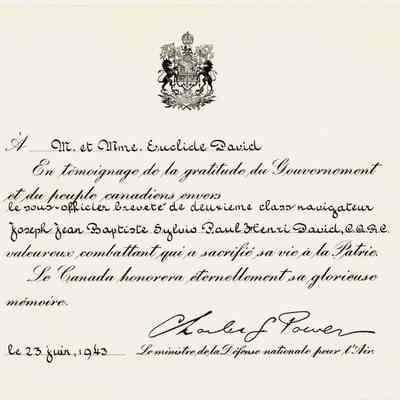 À M. et Mme. Euclide David
En témoignage de la gratitude du Gouvernement
et du peuple canadiens envers
le sous-officier breveté de deuxième class navigateur
Joseph Jean Baptiste Sylvio Paul Henri David, C.A.R.C.
valeureux combattant qui a sacrifié sa vie à la Patrie.
Le Canada honorera éternellement sa glorieuse
mémoire.
Charles G Power
le 23 juin, 1943
Le ministre de la Défense nationale pour l'Air.